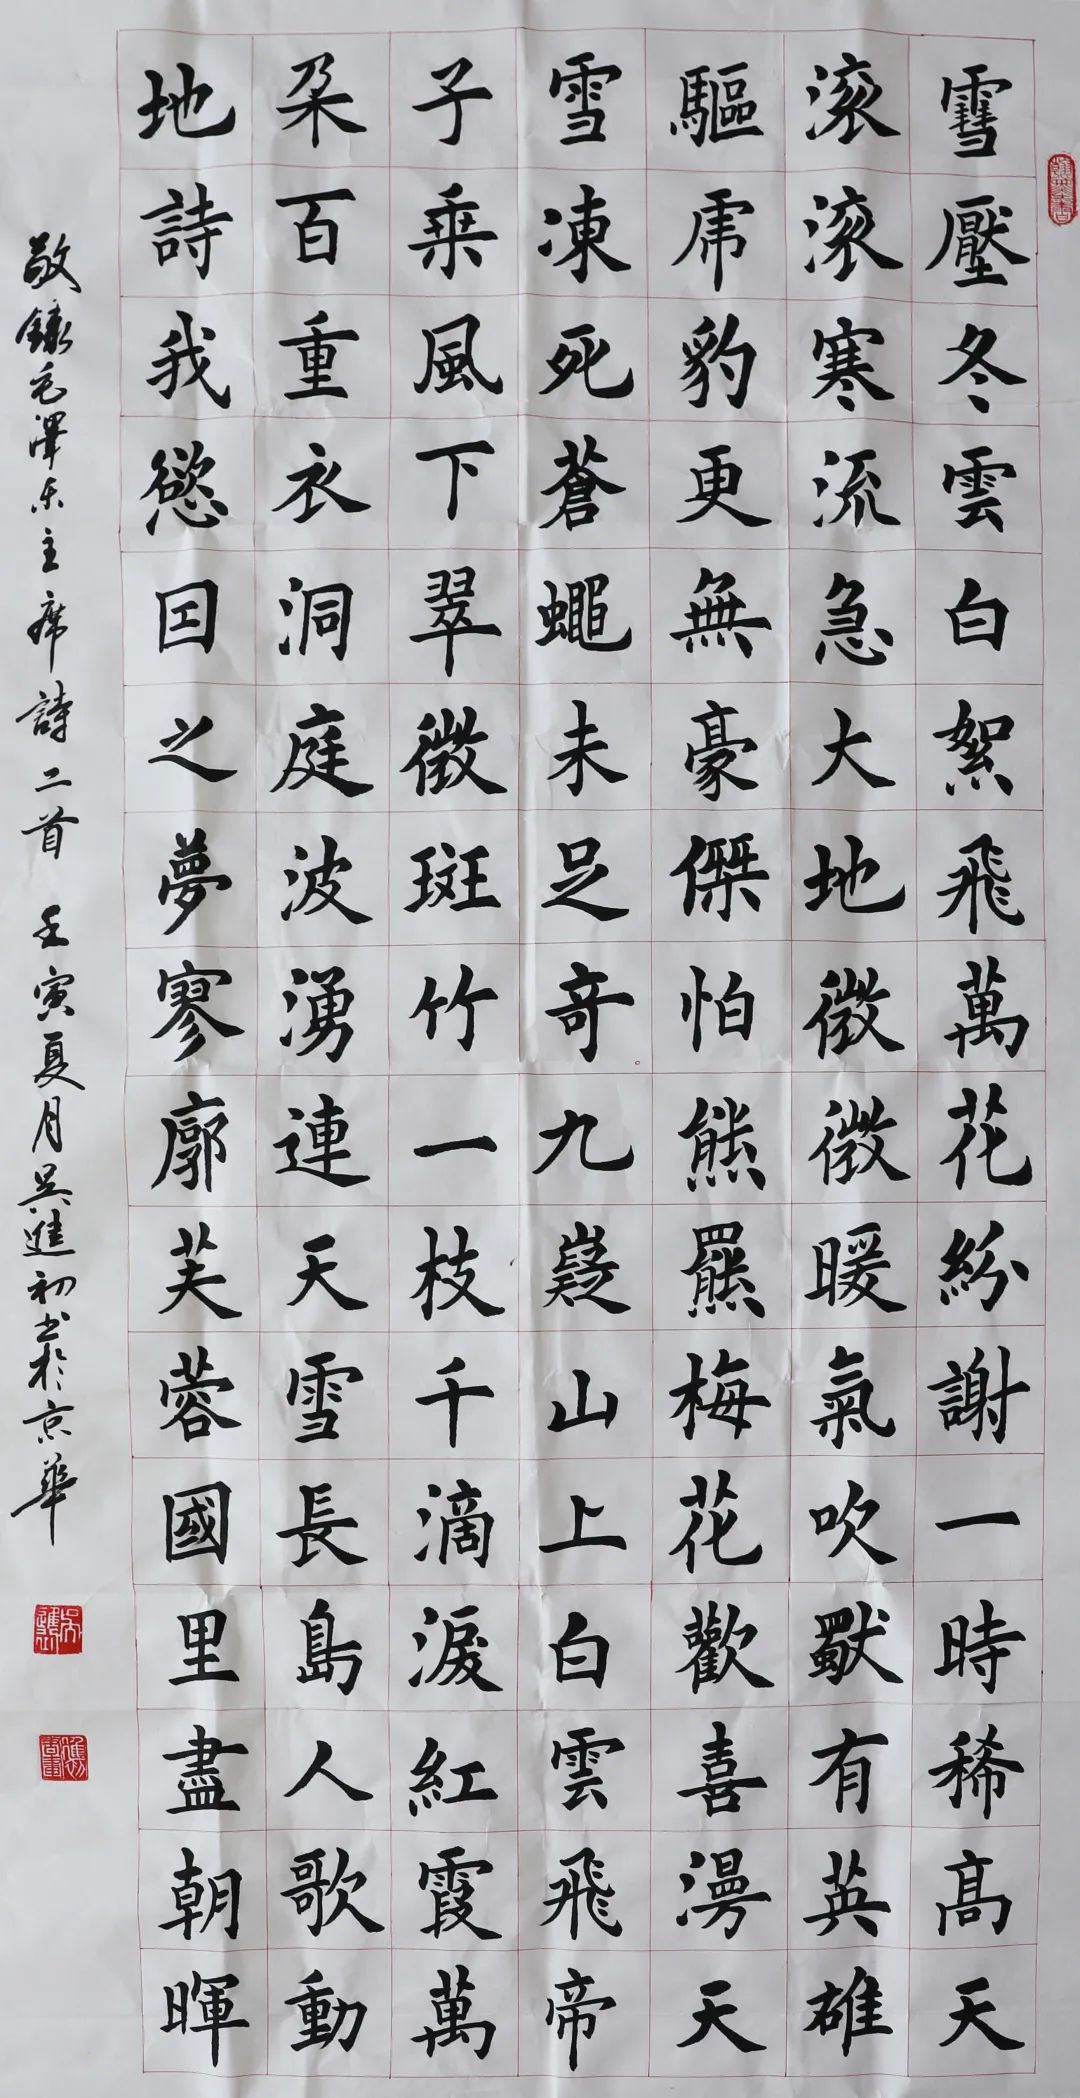 雪壓冬雲白絮飛萬花紛謝一時稀高天
滚滚寒流急大地微微暖氣吹獨有英雄
驅虎豹更無豪傑怕熊羆梅花歡喜漫天
雪凍死蒼蠅未足奇九嶷山上白雲飛帝
子乘風下翠微斑竹一枝千滴淚紅霞萬
朵百重衣洞庭波湧連天雪長島人歌動
地詩我慾因之夢寥廓芙蓉國里盡朝暉
敬錄毛澤东主席詩二首 壬寅夏月吳進初书於京華